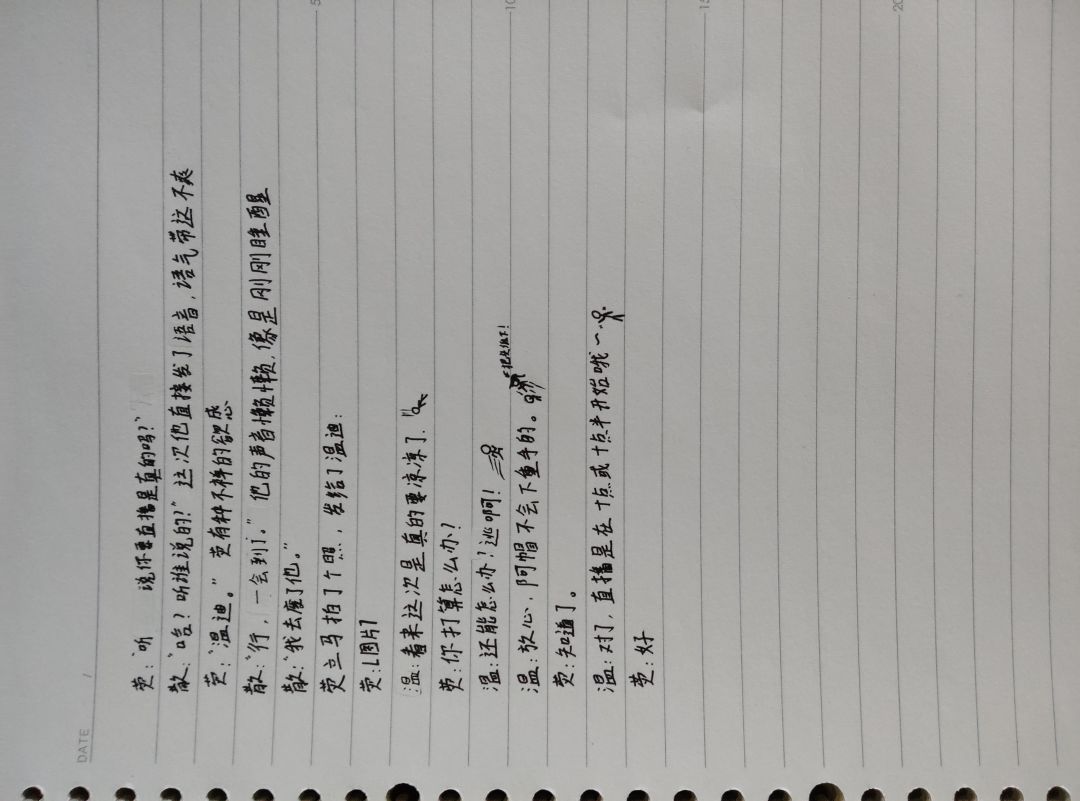 DATE
5
10
15
20
荧:“听 说你要直播是真的吗?”
散:“啥?听谁说的?”这次他直接发了语音,语气带这不爽
荧:“温迪。”荧有种不祥的欲感
散:“行,一会到了。”他的声音懒懒,像是刚刚睡醒
散:“我去废了他。”
荧立马拍了个照,发给了温迪:
荧:[图片]
温:看来这次是真的要凉凉了.
荧:你打算怎么办?
温:还能怎么办?逃啊!
温:放心,阿帽不会下重手的。
荧:知道了。
温:对了,直播是在十点或十点半开始哦~
荧:好